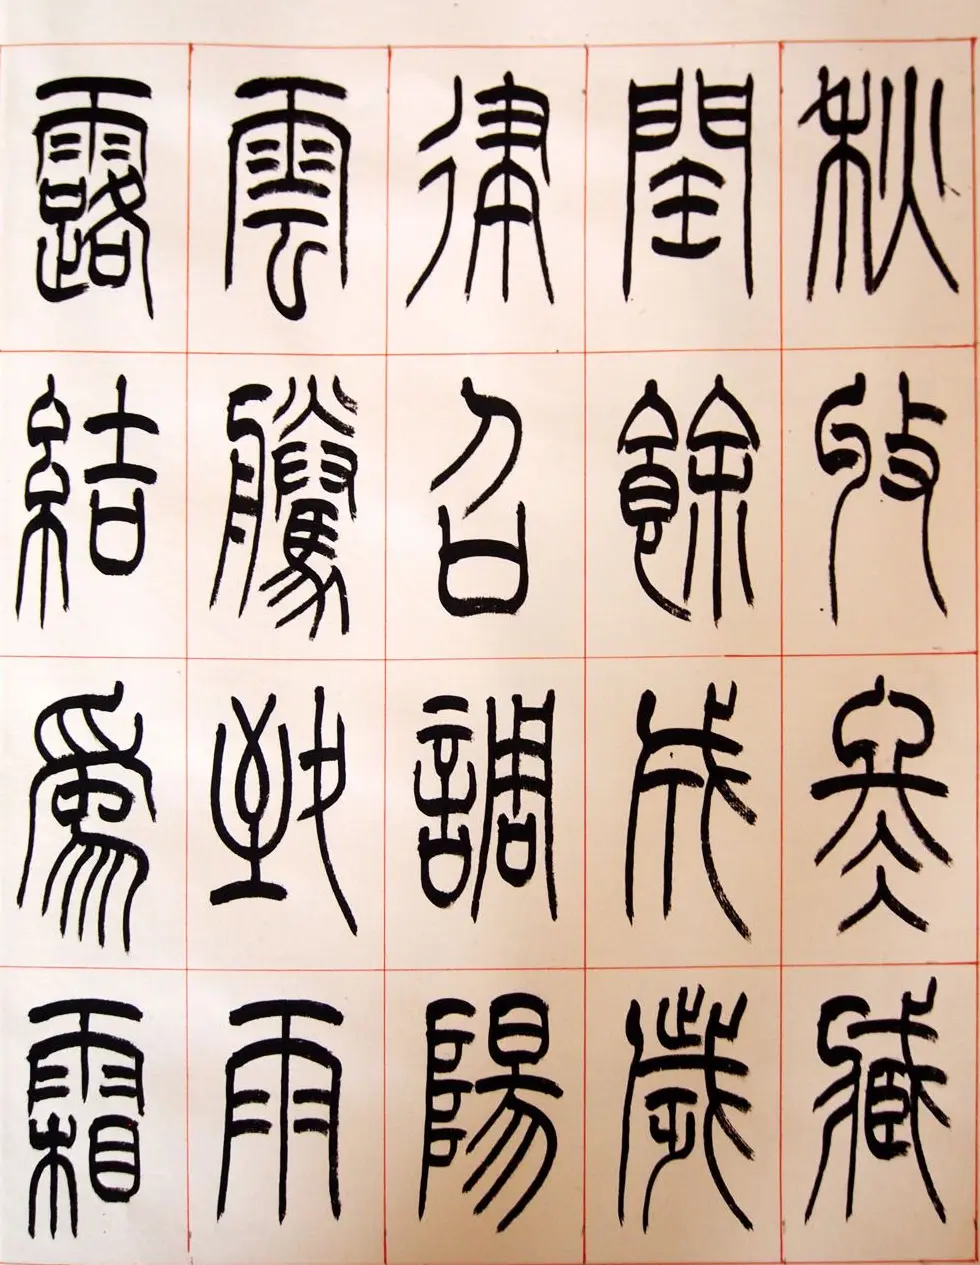 秋收冬臧
閏餘成歲
律召調陽
雲騰致雨
露結爲霜